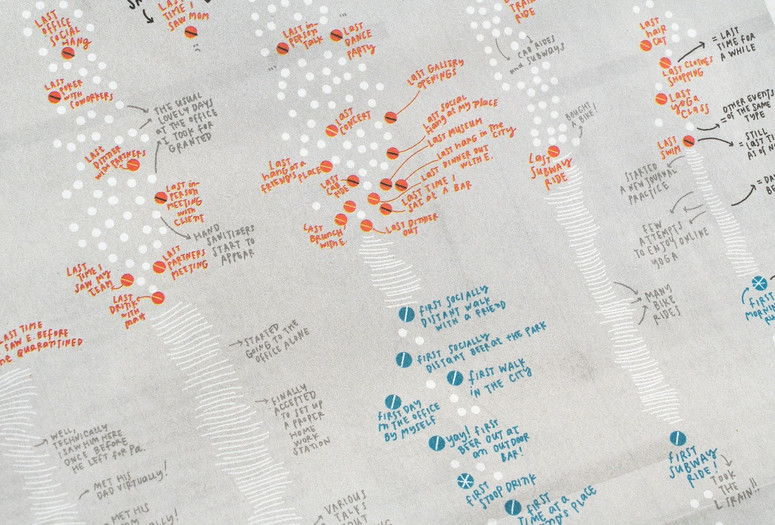 LAST
OFFICE
SOCIAL
HANG
LAST
POKER
WITH
COWORKERS
THE USUAL
LOVELY DAYS
AT THE OFFICE
I TOOK FOR
GRANTED
LAST
DINNER
WITH PARTNERS
LAST IN-
PERSON
MEETING
WITH
CLIENT
HAND
SANITIZERS
START TO
APPEAR
LAST
PARTNERS
MEETING
LAST
TIME I
SAW MY
TEAM
LAST
DRINK
WITH
LAST TIME
SAW E. BEFORE
HE QUARANTINED
STARTED
GOING TO THE
OFFICE ALONE
FINALLY
ACCEPTED
TO SET UP
A PROPER
HOME
WORK
STATION
WELL,
TECHNICALLY
I SAW HIM HERE
ONCE BEFORE
HE LEFT FOR PA.
MET HIS
DAD VIRTUALLY!
MET HIS
VARIOUS
TALKS
LAST
TIME I
SAW MOM
LAST IN-
PERSON
TALK
LAST
DANCE
PARTY
LAST GALLERY
OPENINGS
LAST
CONCERT
LAST SOCIAL
HANG AT MY PLACE
LAST MUSEUM
LAST HANG IN THE
CITY
LAST DINNER OUT
WITH E.
LAST TIME I
SAT AT A BAR
LAST
HANG AT A
FRIEND'S PLACE
LAST
CAB
RIDE
LAST
BRUNCH
WITH E.
LAST DINNER
OUT
FIRST SOCIALLY
DISTANT WALK
WITH A FRIEND
FIRST SOCIALLY
DISTANT BEER AT THE PARK
FIRST WALK
IN THE CITY
FIRST DAY
IN THE OFFICE
BY MYSELF
YAY! FIRST
BEER OUT AT
AN OUTDOOR
BAR!
FIRST
STOOP DRINK
FIRST
TIME AT A
PLACE
TRAIN
RIDE
CAB RIDES
AND SUBWAYS
BOUGHT
A BIKE!
LAST
SUBWAY
RIDE
MANY
BIKE
RIDES
FIRST
SUBWAY
RIDE!
TOOK
THE
L TRAIN!!
LAST
HAIR
CUT
LAST CLOTHES
SHOPPING
LAST
YOGA
CLASS
LAST
SWIM
= LAST
TIME FOR
A WHILE
OTHER EVENTS
= OF THE SAME
TYPE
STILL
STARTED
A NEW JOURNAL
PRACTICE
FEW
ATTEMPTS
TO ENJOY ONLINE
YOGA
FIRST